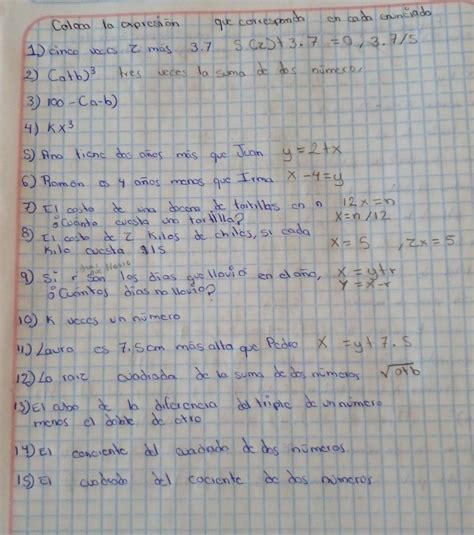 Coloca la expresión que corresponda en cada enunciado
1) cinco veces z más 3.7 5(z)+3.7=0, 3.7/5
2) (a+b)³ tres veces la suma de dos número,
3) 100-(a-b)
4) Kx³
5) Ana tiene dos años más que Juan y=2+x
6) Ramón es 4 años menos que Irma x-4=y
7) El costo de una docena de tortillas en n 12x=n
¿Cuánto cuesta una tortilla? x=n/12
8) El costo de z kilos de chiles, si cada x=5 , zx=5
kilo cuesta $15
9) Si r son los días que llovió en el año, x=y+r
¿Cuántos días no llovió? y=x-r
10) K veces un número
11) Laura es 7.5cm más alta que Pedro x=y+7.5
12) La raiz cuadrada de la suma de dos números √a+b
13) El cubo de la diferencia del triple de un número
menos el doble de otro
14) El cociente del cuadrado de dos números
15) El cuadrado del cociente de dos números